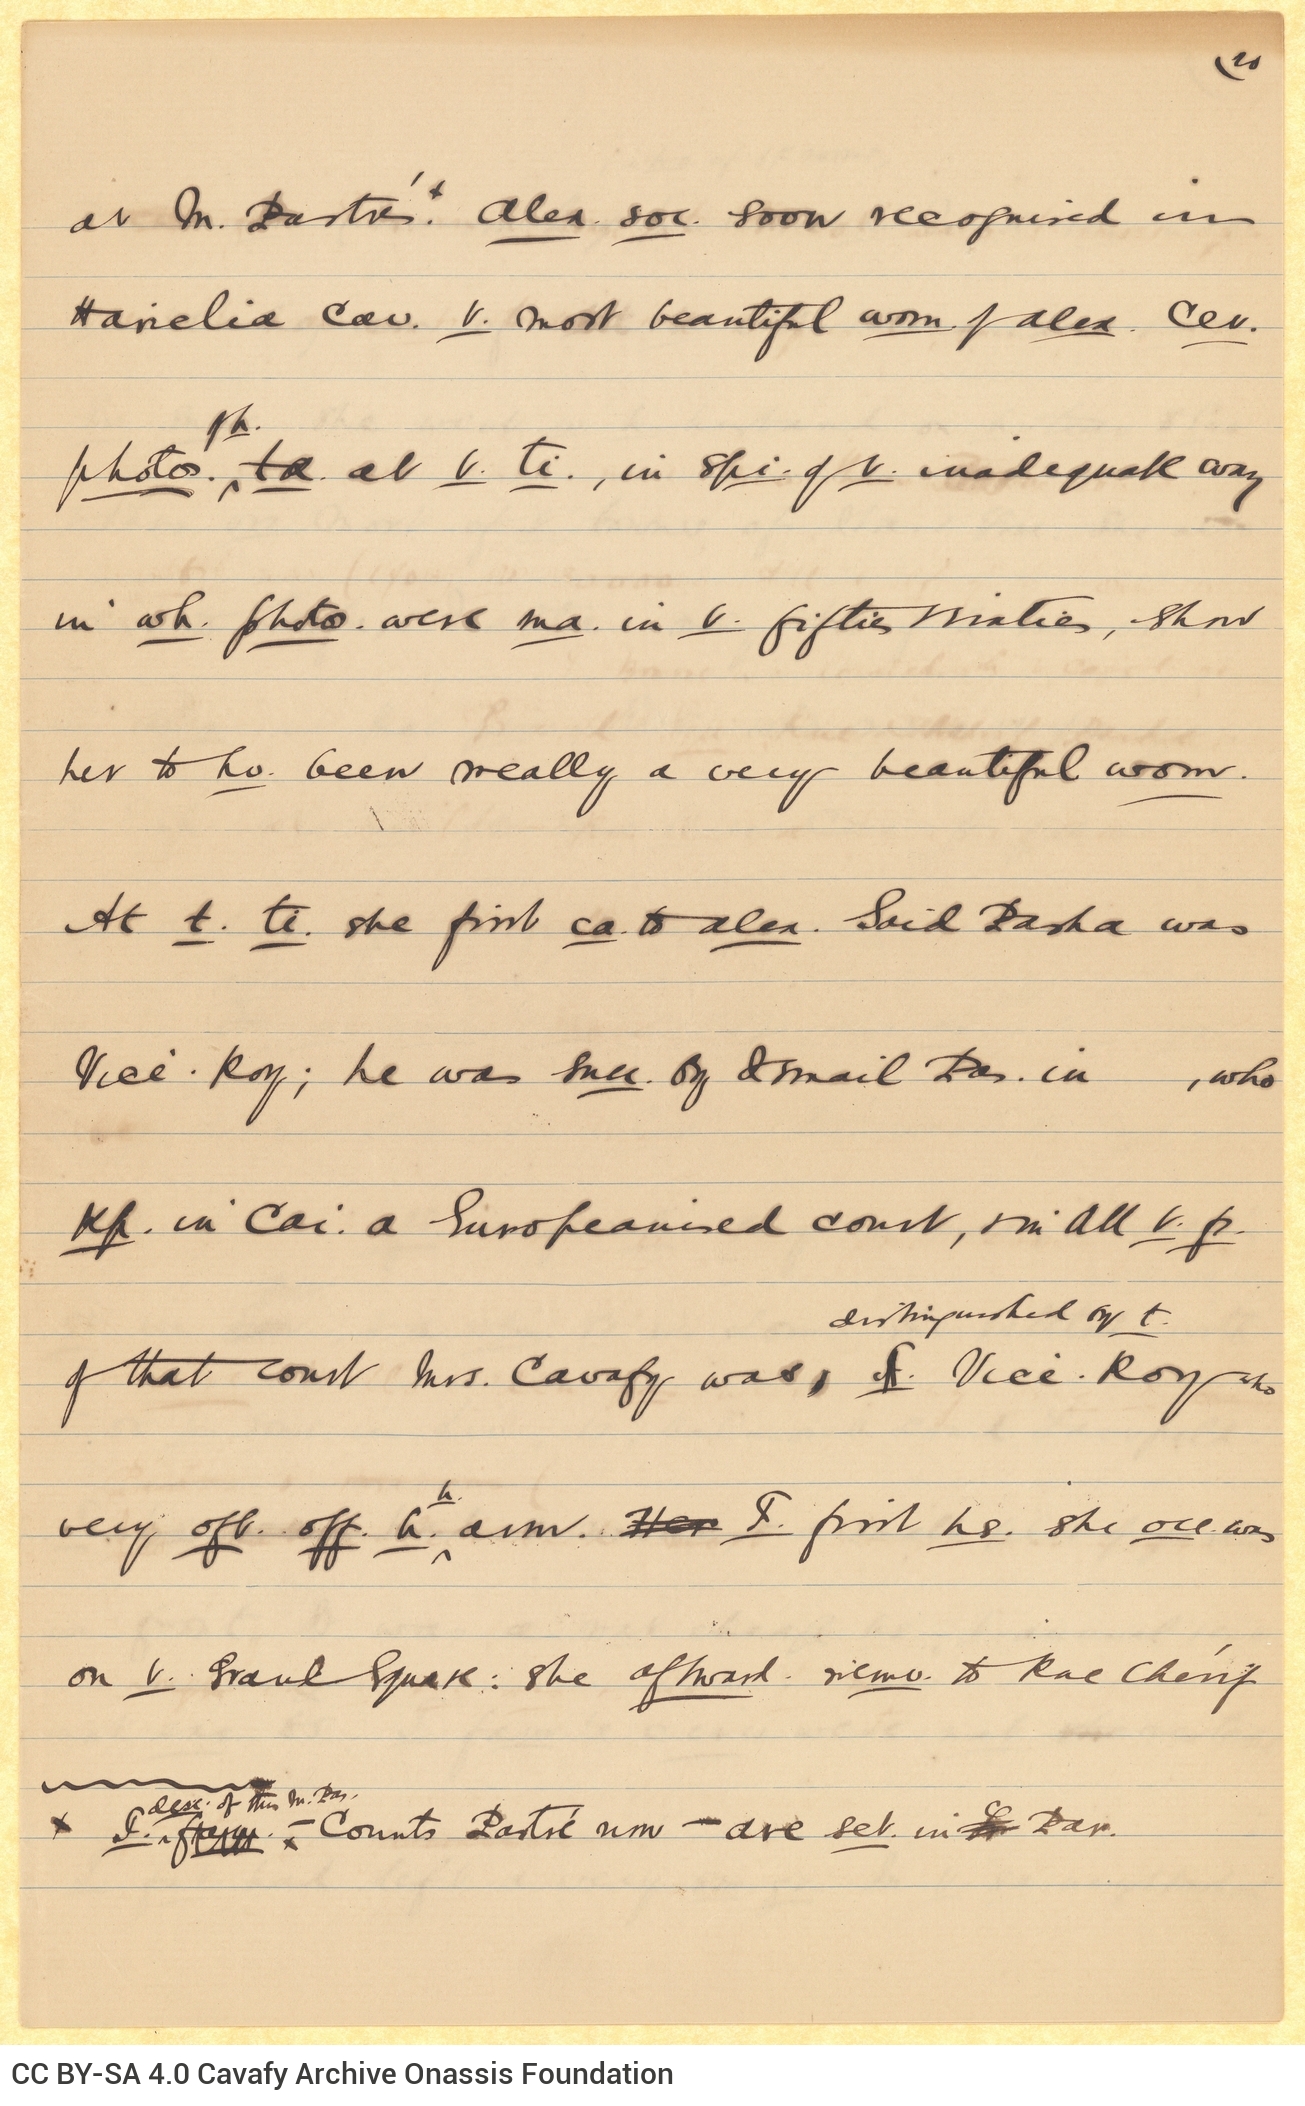 (20
at M. Pastré's.x Alex. soc. soon recognised in
Hariclia Cav. t. most beautiful wom. of Alex. Cer.
ph.
photos. ta. at t. ti., in spi. of t. inadequate way
in wh. photo. were ma. in t. fifties & sixties, show
her to hv. been really a very beautiful wom.
At t. ti. she first ca. to Alex. Said Pasha was
Vice-Roy; he was succ. by Ismail Pas. in , who
kp. in Cai. a Europeanised court, & in all t. p.
distinguished by t.
of that court Mrs. Cavafy was, Vice-Roy who
h.
very oft. off. h. arm. Her T. first hs. she occ. was
on t. Grand Square: she aftward. remv. to Rue Chérif
desc. of this M. Pas.
x T. – Counts Pastré now – are set. in Par.
CC BY-SA 4.0 Cavafy Archive Onassis Foundation